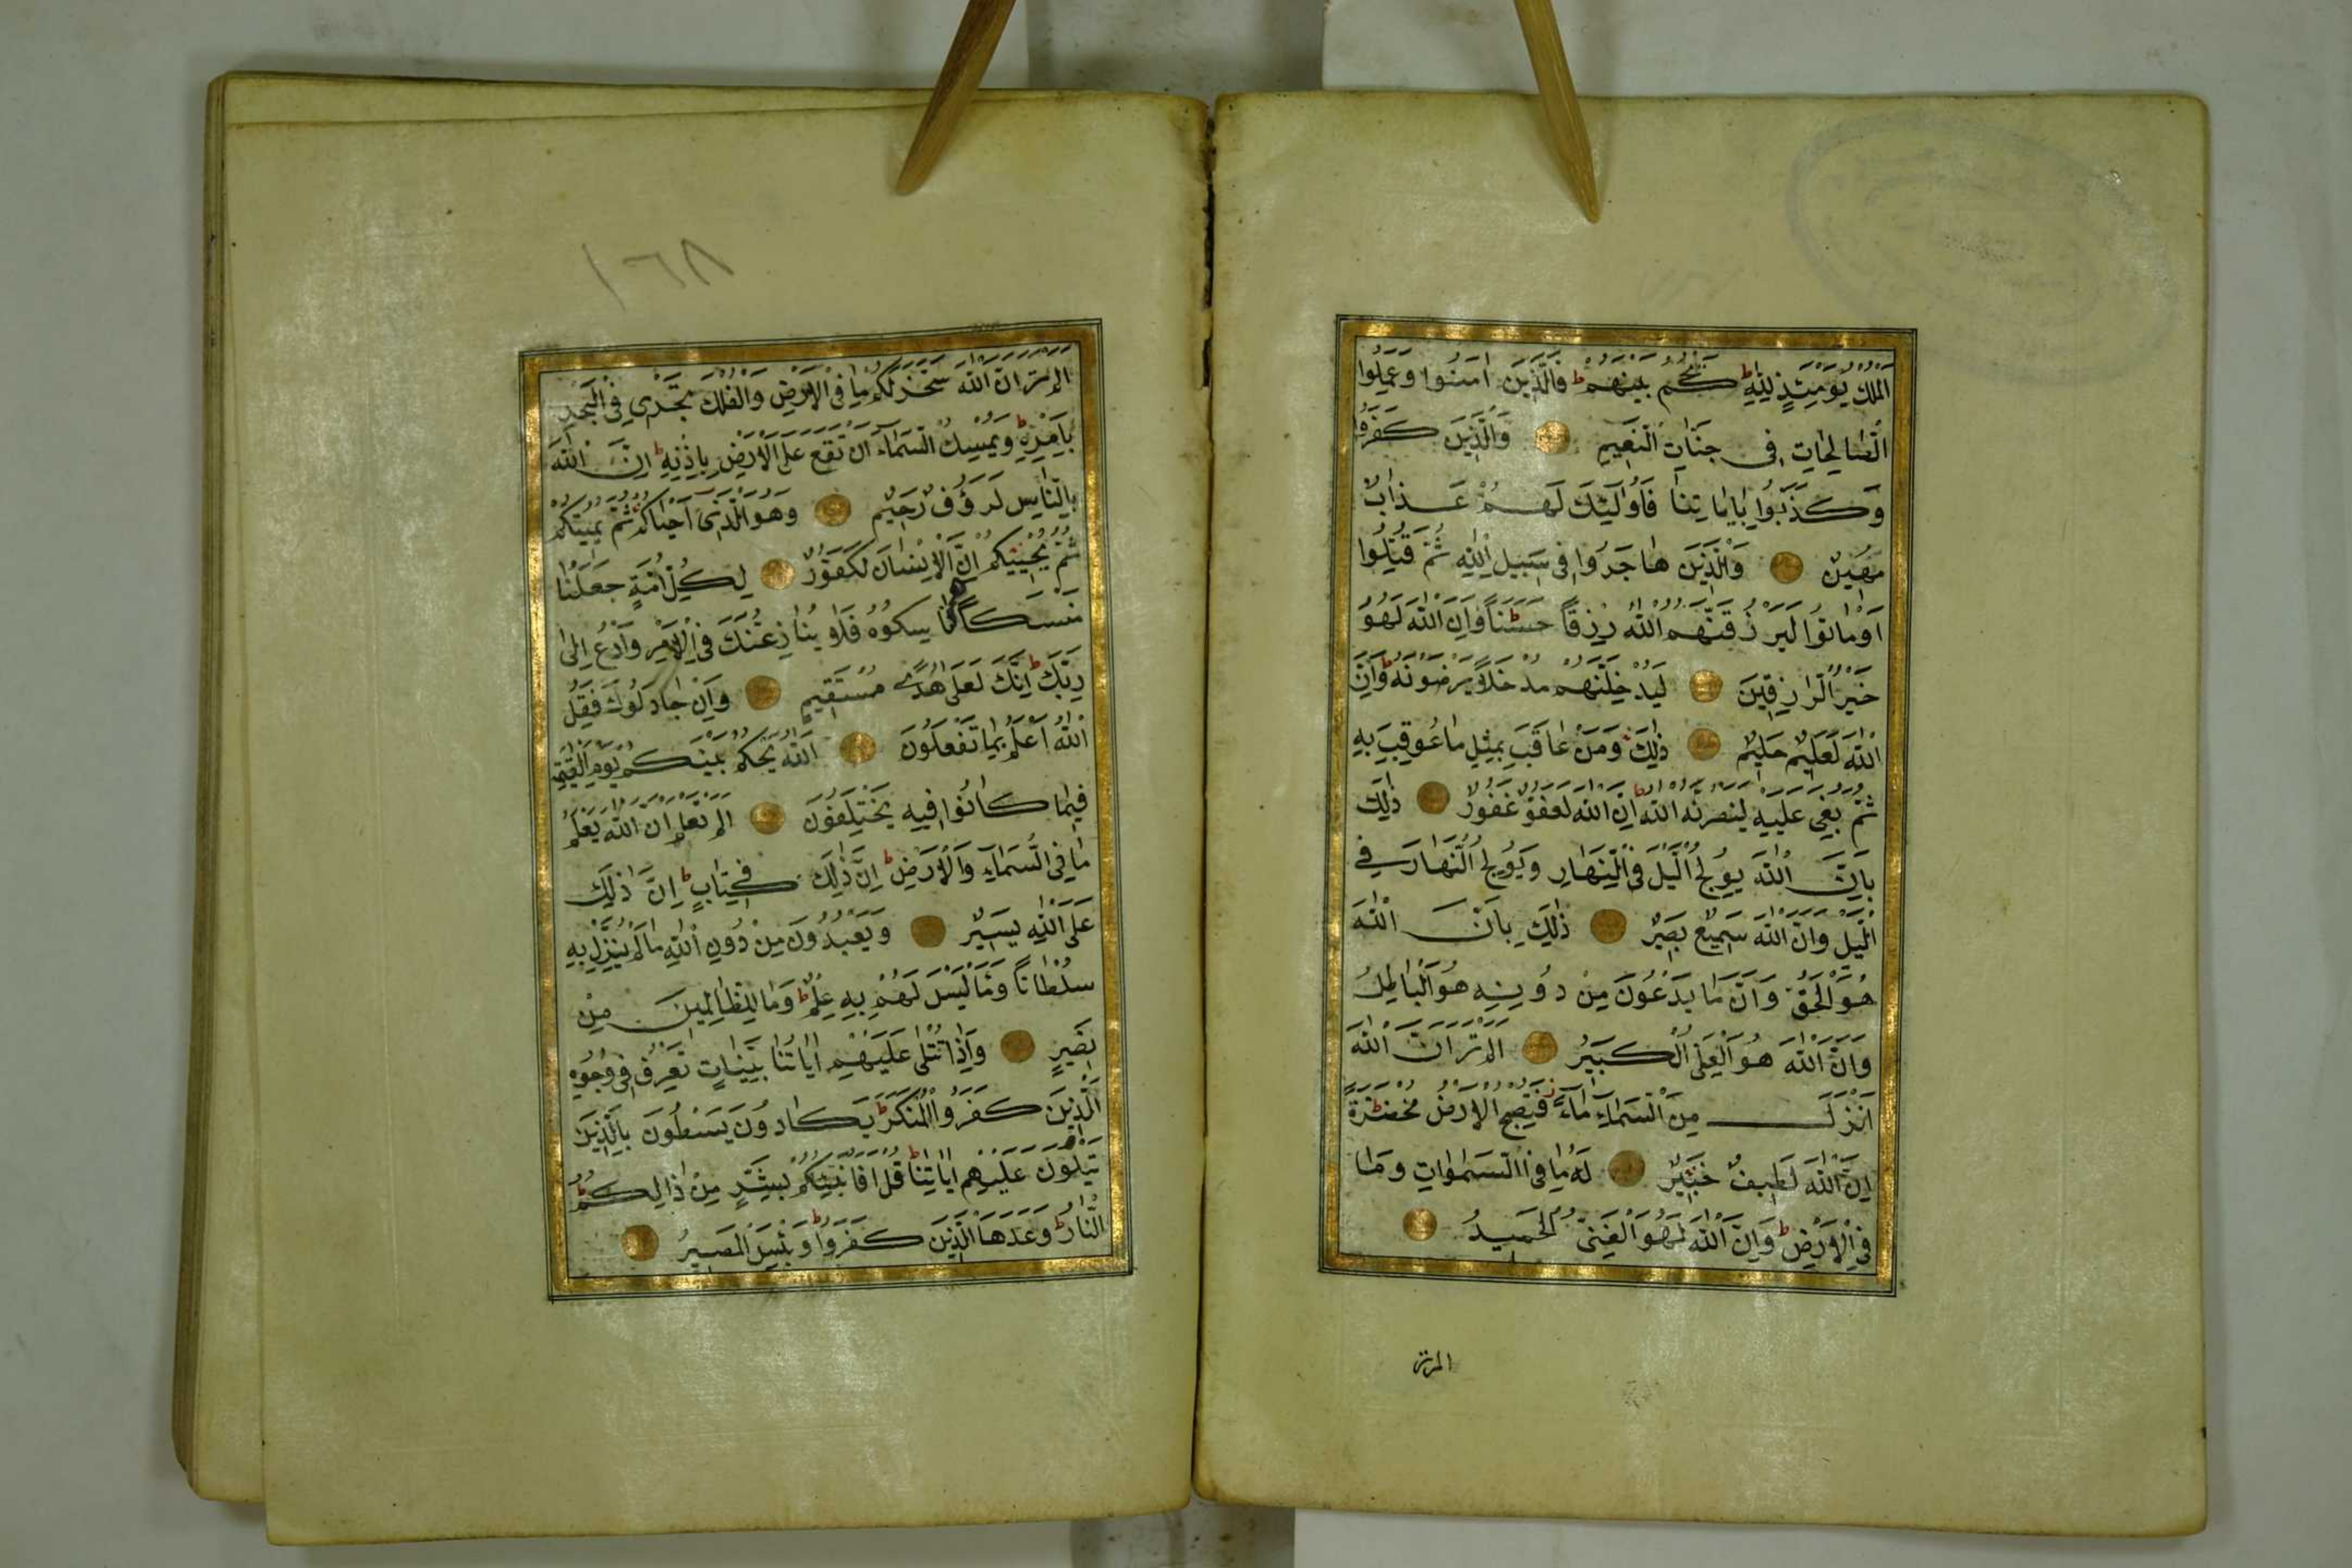 اَلْمُلْكُ يَوْمَئِذٍ لِلّٰهِ ط يَحْكُمُ بَيْنَهُمْ ط فَالَّذِينَ اٰمَنُوا وَعَمِلُوا
الصَّالِحَاتِ فِى جَنَّاتِ النَّعِيمِ وَالَّذِينَ كَفَرُوا
وَكَذَّبُوا بِاٰيَاتِنَا فَاُولٰئِكَ لَهُمْ عَذَابٌ
مُهِينٌ وَالَّذِينَ هَاجَرُوا فِى سَبِيلِ اللّٰهِ ثُمَّ قُتِلُوا
اَوْ مَاتُوا لَيَرْزُقَنَّهُمُ اللّٰهُ رِزْقًا حَسَنًا ط وَاِنَّ اللّٰهَ لَهُوَ
خَيْرُ الرَّازِقِينَ لَيُدْخِلَنَّهُمْ مُدْخَلاً يَرْضَوْنَهُ ط وَاِنَّ
اللّٰهَ لَعَلِيمٌ حَلِيمٌ ذٰلِكَ وَمَنْ عَاقَبَ بِمِثْلِ مَا عُوقِبَ بِهِ
ثُمَّ بُغِىَ عَلَيْهِ لَيَنْصُرَنَّهُ اللّٰهُ ط اِنَّ اللّٰهَ لَعَفُوٌّ غَفُورٌ ذٰلِكَ
بِاَنَّ اللّٰهَ يُولِجُ الَّيْلَ فِى النَّهَارِ وَيُولِجُ النَّهَارَ فِى
الَّيْلِ وَاَنَّ اللّٰهَ سَمِيعٌ بَصِيرٌ ذٰلِكَ بِاَنَّ اللّٰهَ
هُوَ الْحَقُّ وَاَنَّ مَا يَدْعُونَ مِنْ دُونِهِ هُوَ الْبَاطِلُ
وَاَنَّ اللّٰهَ هُوَ الْعَلِىُّ الْكَبِيرُ اَلَمْ تَرَ اَنَّ اللّٰهَ
اَنْزَلَ مِنَ السَّمَاءِ مَاءً فَتُصْبِحُ الْاَرْضُ مُخْضَرَّةً ط
اِنَّ اللّٰهَ لَطِيفٌ خَبِيرٌ لَهُ مَا فِى السَّمٰوَاتِ وَمَا
فِى الْاَرْضِ ط وَاِنَّ اللّٰهَ لَهُوَ الْغَنِىُّ الْحَمِيدُ
الم تر
١٦٨
اَلَمْ تَرَ اَنَّ اللّٰهَ سَخَّرَ لَكُمْ مَا فِى الْاَرْضِ وَالْفُلْكَ تَجْرِى فِى الْبَحْرِ
بِاَمْرِهِ ط وَيُمْسِكُ السَّمَاءَ اَنْ تَقَعَ عَلَى الْاَرْضِ اِلَّا بِاِذْنِهِ ط اِنَّ اللّٰهَ
بِالنَّاسِ لَرَؤُفٌ رَحِيمٌ وَهُوَ الَّذِى اَحْيَاكُمْ ثُمَّ يُمِيتُكُمْ
ثُمَّ يُحْيِيكُمْ اِنَّ الْاِنْسَانَ لَكَفُورٌ لِكُلِّ اُمَّةٍ جَعَلْنَا
مَنْسَكًا هُمْ نَاسِكُوهُ فَلَا يُنَازِعُنَّكَ فِى الْاَمْرِ وَادْعُ اِلٰى
رَبِّكَ ط اِنَّكَ لَعَلٰى هُدًى مُسْتَقِيمٍ وَاِنْ جَادَلُوكَ فَقُلِ
اللّٰهُ اَعْلَمُ بِمَا تَفْعَلُونَ اَللّٰهُ يَحْكُمُ بَيْنَكُمْ يَوْمَ الْقِيٰمَةِ
فِيمَا كَانُوا فِيهِ يَخْتَلِفُونَ اَلَمْ تَعْلَمْ اَنَّ اللّٰهَ يَعْلَمُ
مَا فِى السَّمَاءِ وَالْاَرْضِ ط اِنَّ ذٰلِكَ فِى كِتَابٍ ط اِنَّ ذٰلِكَ
عَلَى اللّٰهِ يَسِيرٌ وَيَعْبُدُونَ مِنْ دُونِ اللّٰهِ مَا لَمْ يُنَزِّلْ بِهِ
سُلْطَانًا وَمَا لَيْسَ لَهُمْ بِهِ عِلْمٌ ط وَمَا لِلظَّالِمِينَ مِنْ
نَصِيرٍ وَاِذَا تُتْلٰى عَلَيْهِمْ اٰيَاتُنَا بَيِّنَاتٍ تَعْرِفُ فِى وُجُوهِ
الَّذِينَ كَفَرُوا الْمُنْكَرَ ط يَكَادُونَ يَسْطُونَ بِالَّذِينَ
يَتْلُونَ عَلَيْهِمْ اٰيَاتِنَا ط قُلْ اَفَاُنَبِّئُكُمْ بِشَرٍّ مِنْ ذٰلِكُمْ ط
اَلنَّارُ ط وَعَدَهَا الَّذِينَ كَفَرُوا ط وَبِئْسَ الْمَصِيرُ